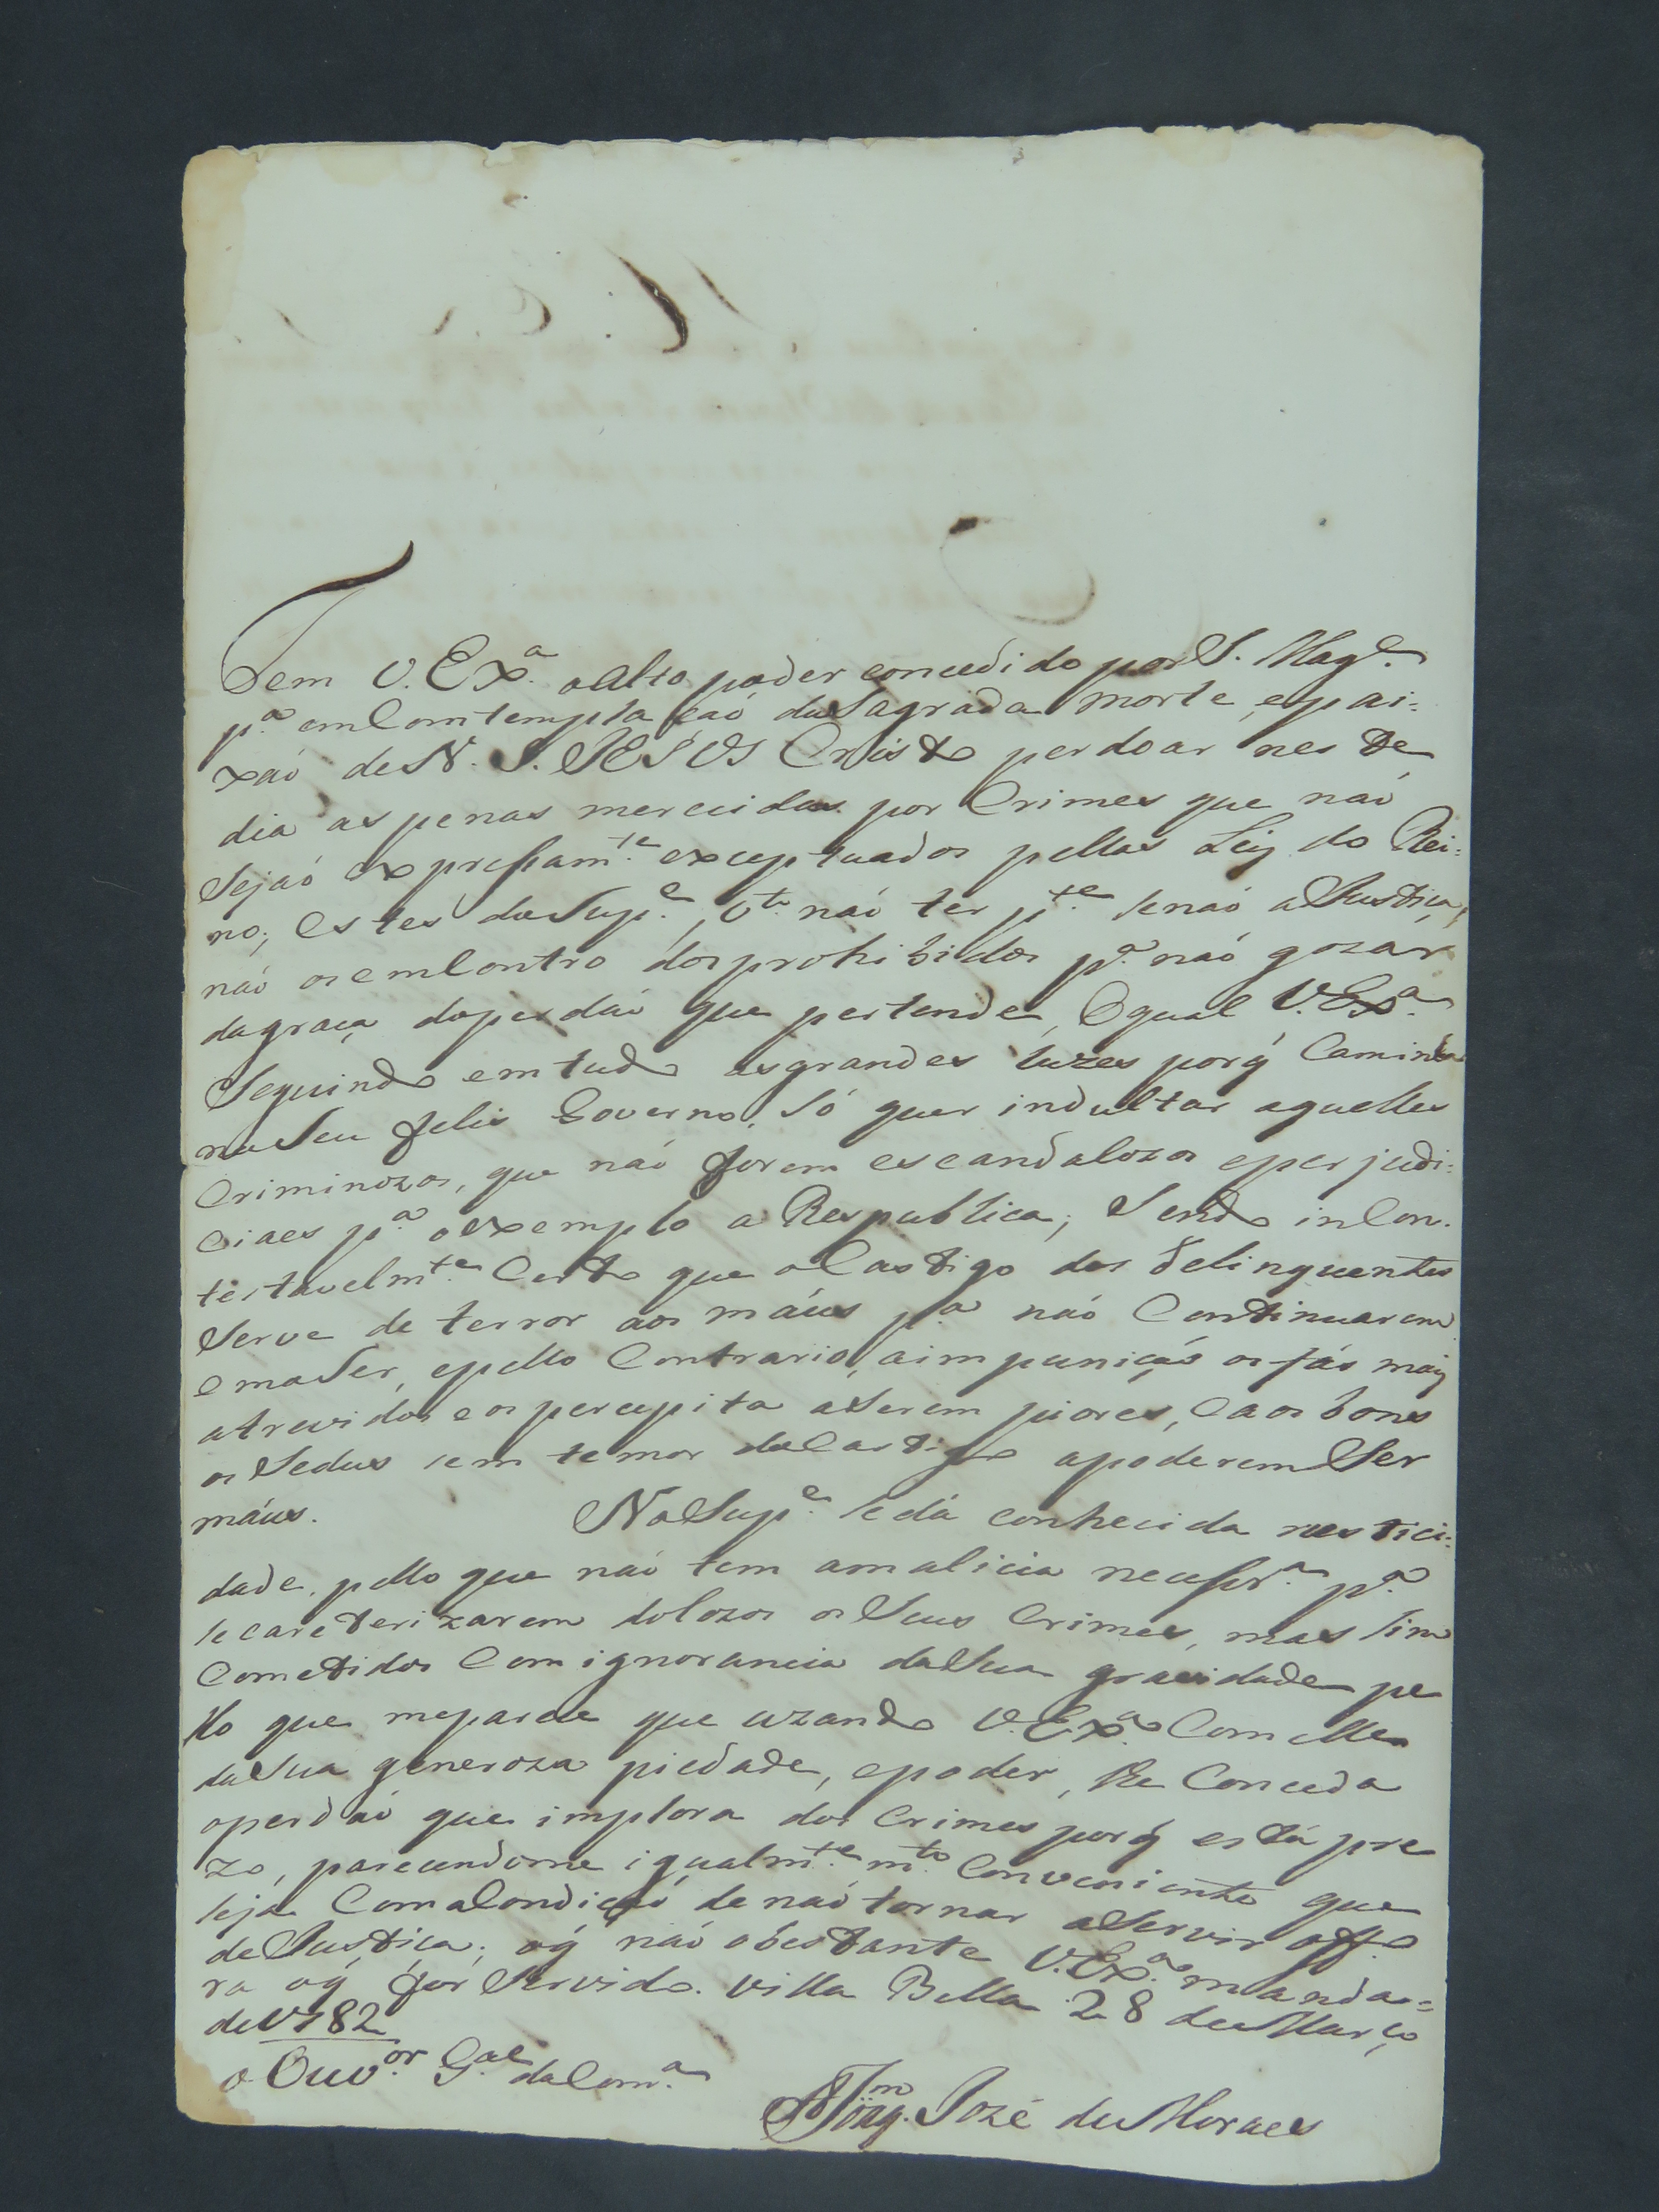 Tem V. Exª. o alto poder concedido por S. Magᵉ.
pª. em Comtemplaçaõ da Sagrada morte, e pai:
xaõ de N. S. JESVS Cristo perdoar neste
dia as penas merecidas por Crimes que naõ
Sejaõ expressamᵗᵉ. exceptuados pellas Leys do Rei:
no; estes do Supᵉ., vᵗᵒ. naõ ter pᵗᵉ. senaõ a Justiça,
naõ os emContro dos prohibidos pª. naõ gozar
da graça do perdaõ que pertende, Oqual V. Exª.
Seguindo em tudo as grandes luzes porq̃ Caminha
no Seu felis Governo, Só quer indultar aquelles
Criminozos, que naõ forem escandalozos e perjudi:
Ciaes pª. o exemplo a Respublica; Sendo inCon:
testavelmᵗᵉ. Certo que o Castigo dos delinquentes
Serve de terror aos máus pª. naõ Continuarem
ema Ser, e pello Contrario, a impuniçaõ os fás mais
atrevidos, e os percepita a Serem piores, e aos bons
os Sedus sem temor do Castigo a poderem Ser
máus. No Supᵉ. se dá conhecida rustici:
dade, pello que naõ tem a malicia necessrª. pª.
se careterizarem dolozos os Seus Crimes, mas sim
Cometidos Com ignorancia da Sua gravidade pe
llo que me parece que uzando V. Exª. Com elle
da Sua generoza piedade, e poder, lhe Conceda
o perdaõ que implora dos Crimes porq̃ está pre
zo, parecendome igualmᵗᵉ. mᵗᵒ. Conveniente que
seja Com a Condiçaõ de naõ tornar a Servir offᵒ.
de Justiça; oq̃ naõ obestante V. Exª. manda=
ra oq̃ for Servido. Villa Bella 28 de Março
de 1782
o Ouvᵒʳ. Gᵃˡ. da Comª.
Joaqᵐ. Jozé de Moraes